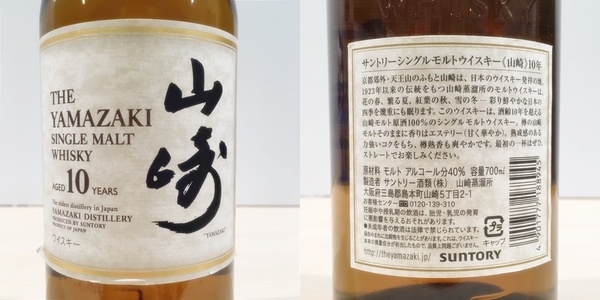 THE
YAMAZAKI
SINGLE MALT
WHISKY
AGED 10 YEARS
The oldest distillery in Japan
YAMAZAKI DISTILLERY
PRODUCED BY SUNTORY
PRODUCT OF JAPAN
ウイスキー
山崎
"YAMAZAKI"
サントリーシングルモルトウイスキー《山崎》10年
京都郊外・天王山のふもと山崎は、日本のウイスキー発祥の地。
1923年以来の伝統をもつ山崎蒸溜所のモルトウイスキーは、
花の春、繁る夏、紅葉の秋、雪の冬―彩り鮮やかな日本の
四季を幾重にも眠ります。このウイスキーは、酒齢10年を超える
山崎モルト原酒100%のシングルモルトウイスキー。樽の山崎
モルトそのままに香りはエステリー(甘く華やか)。熟成感のある
力強いコクをもち、樽熟香も爽やかです。最初の一杯はぜひ、
ストレートでお楽しみください。
原材料 モルト アルコール分40% 容量700ml
製造者 サントリー酒類(株) 山崎蒸溜所
大阪府三島郡島本町山崎5丁目2-1
お客様センター 0120-139-310
妊娠中や授乳期の飲酒は、胎児・乳児の発育
に悪影響を与えるおそれがあります。
●未成年者の飲酒は法律で禁じられています。
http://theyamazaki.jp/ SUNTORY
プラ
キャップ
4 901777 188945